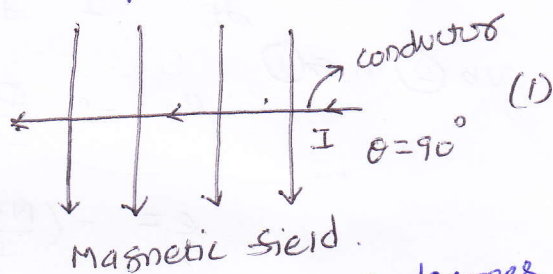 conductor
(1)
I θ=90°
Magnetic field.